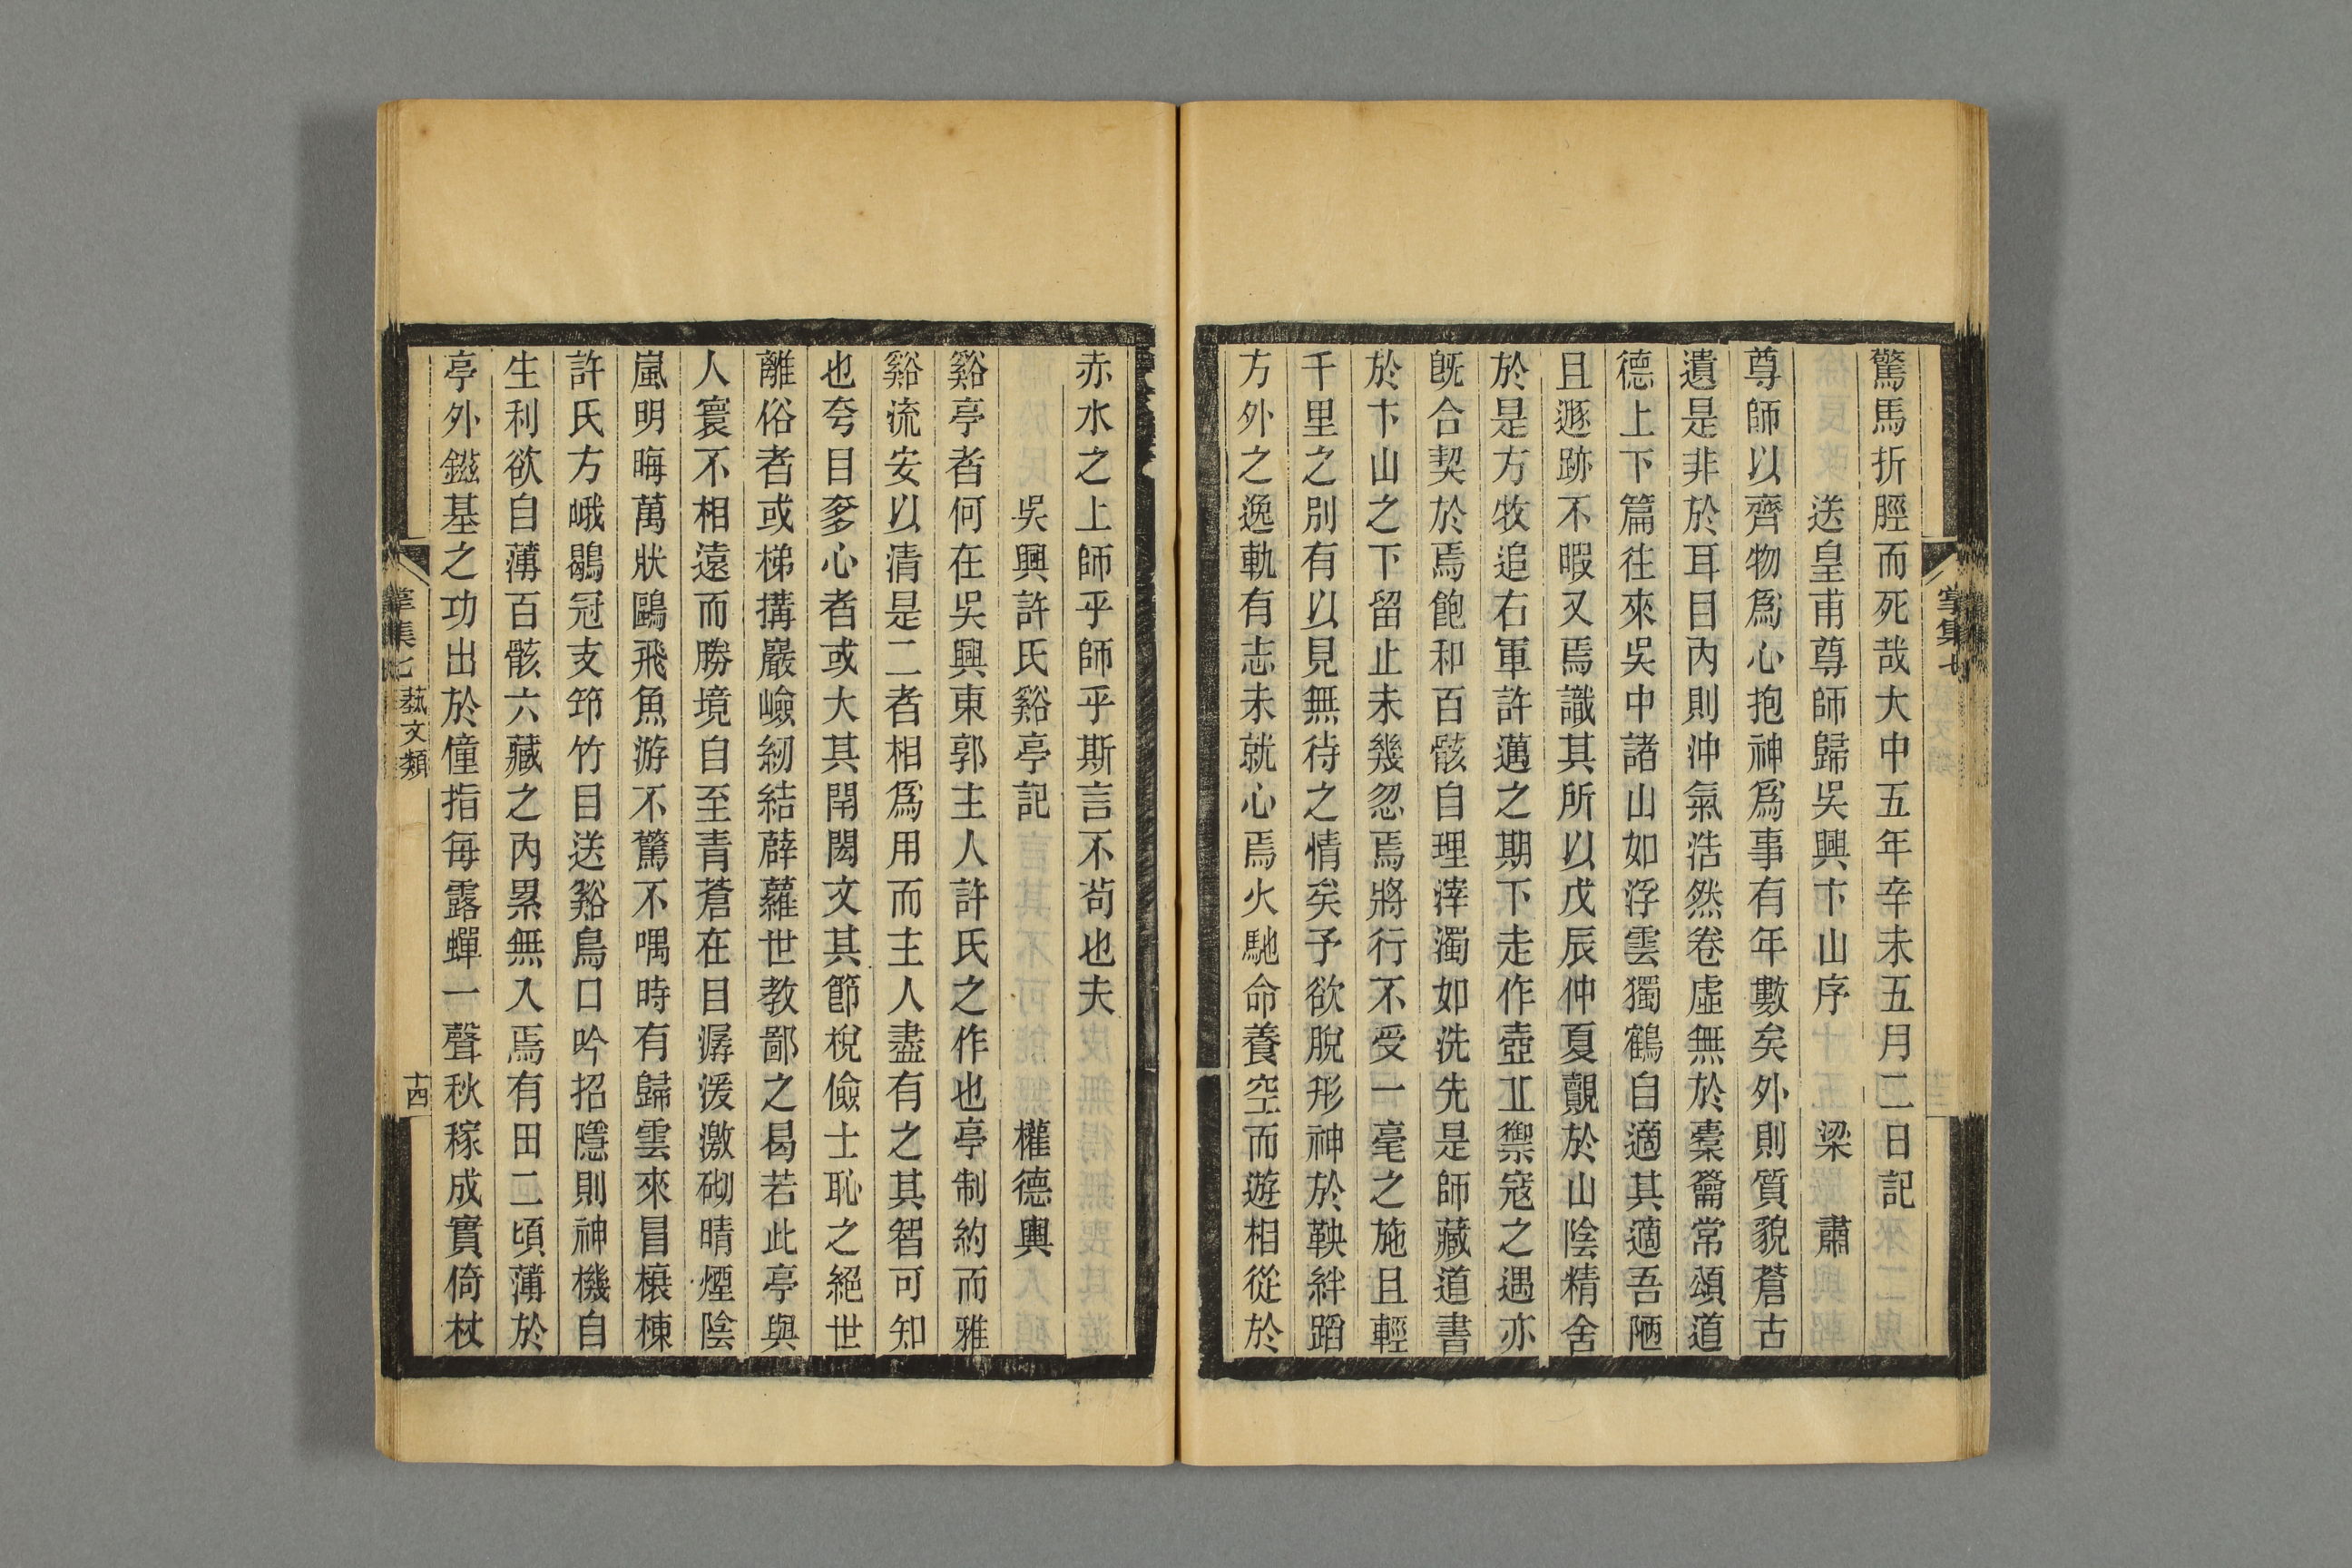 驚馬折脛而死哉大中五年辛未五月二日記
送皇甫尊師歸吳興卞山序 梁 肅
尊師以齊物爲心抱神爲事有年數矣外則質貌蒼古
遺是非於耳目內則沖氣浩然卷虛無於橐籥常頌道
德上下篇往來吳中諸山如浮雲獨鶴自適其適吾陋
且遯跡不暇又焉識其所以戊辰仲夏覿於山陰精舍
於是方牧追右軍許邁之期下走作壺丘禦寇之遇亦
旣合契於焉飽和百骸自理滓濁如洗先是師藏道書
於卞山之下留止未幾忽焉將行不受一毫之施且輕
千里之別有以見無待之情矣予欲脫形神於鞅絆蹈
方外之逸軌有志未就心焉火馳命養空而遊相從於
赤水之上師乎師乎斯言不茍也夫
吳興許氏谿亭記 權德輿
谿亭者何在吳興東郭主人許氏之作也亭制約而雅
谿流安以清是二者相爲用而主人盡有之其智可知
也夸目奓心者或大其閈閎文其節梲儉士恥之絕世
離俗者或梯搆巖嶮紉結薜蘿世教鄙之曷若此亭與
人寰不相遠而勝境自至青蒼在目潺湲激砌晴煙陰
嵐明晦萬狀鷗飛魚游不驚不喁時有歸雲來冒榱棟
許氏方峨鶡冠支筇竹目送谿鳥口吟招隱則神機自
生利欲自薄百骸六藏之內累無入焉有田二頃薄於
亭外鎡基之功出於僮指每露蟬一聲秋稼成實倚杖
掌集七 藝文類 十四
掌集七